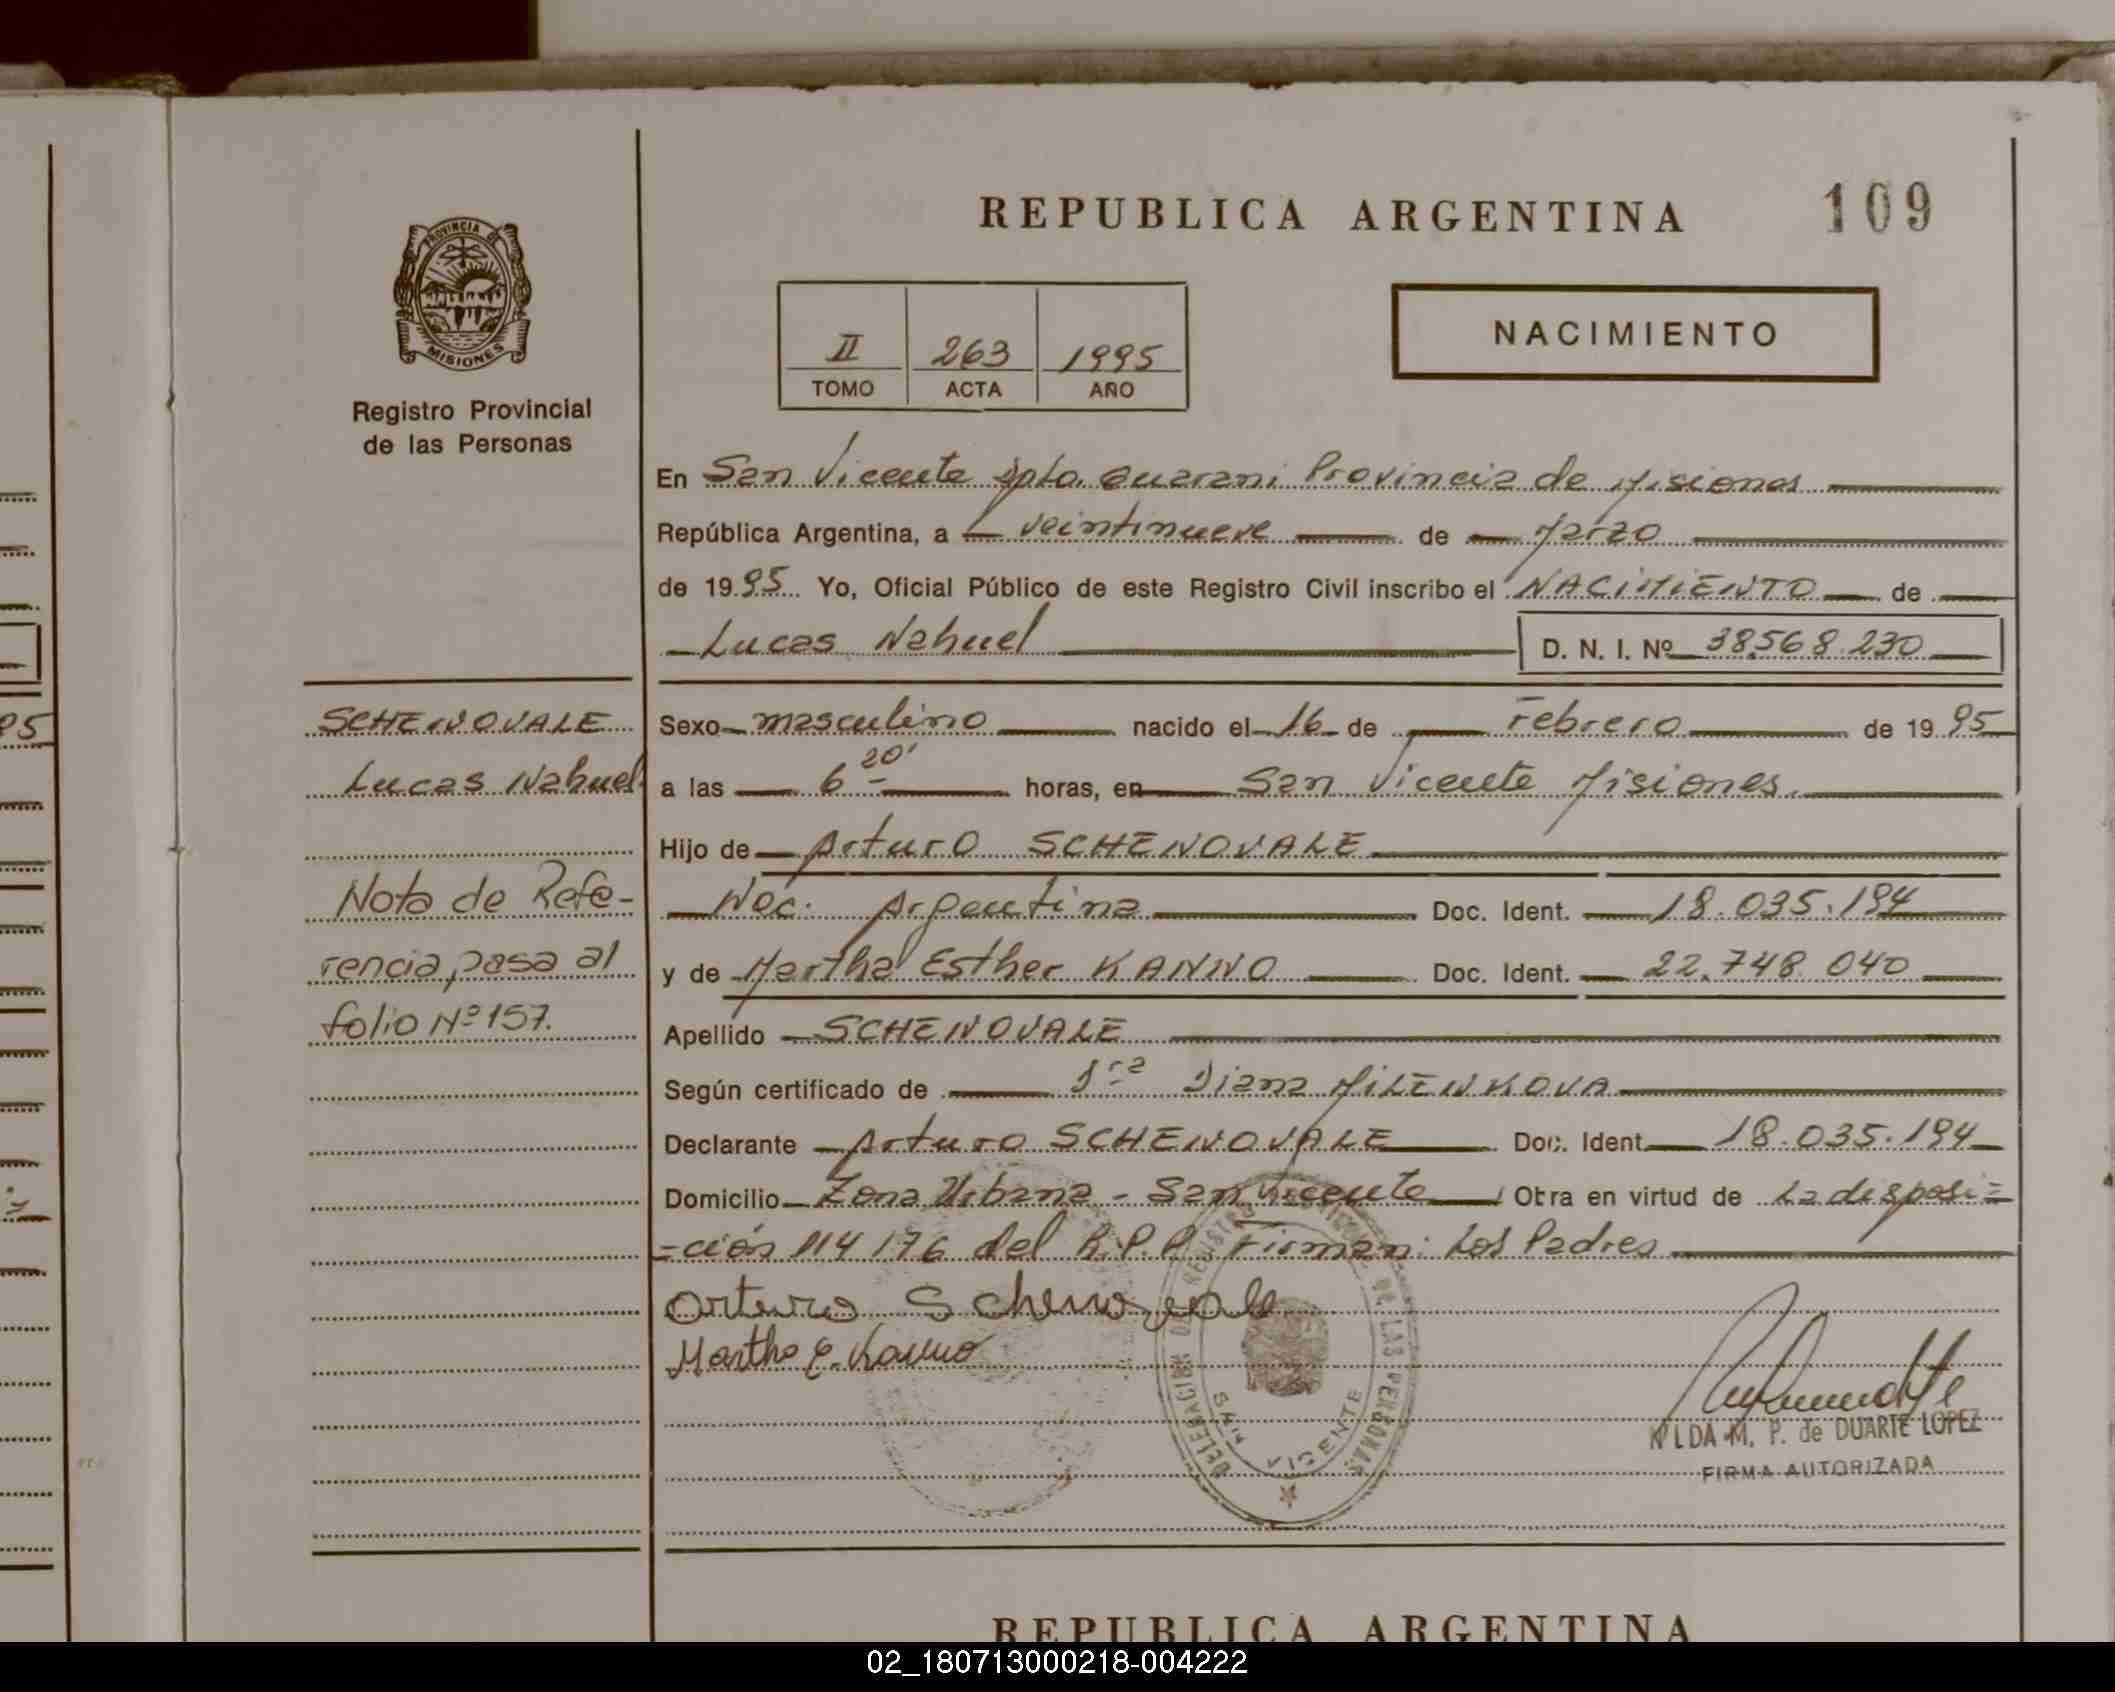 REPUBLICA ARGENTINA
109
PROVINCIA DE
MISIONES
Registro Provincial
de las Personas
II 263 1995
TOMO ACTA AÑO
NACIMIENTO
En San Vicente Dpto. Guarani Provincia de Misiones
República Argentina, a veintinueve de Marzo
de 1995 Yo, Oficial Público de este Registro Civil inscribo el NACIMIENTO de
Lucas Nahuel D. N. I. Nº 38.568.230
SCHENOVALE
Lucas Nahuel
Nota de Refe-
rencia, pasa al
folio Nº 157.
Sexo masculino nacido el 16 de Febrero de 1995
a las 6 20' horas, en San Vicente Misiones.
Hijo de Arturo SCHENOVALE
Nac. Argentina Doc. Ident. 18.035.194
y de Martha Esther KANNO Doc. Ident. 22.748.040
Apellido SCHENOVALE
Según certificado de Dra Diana MILENKOVA
Declarante Arturo SCHENOVALE Doc. Ident. 18.035.194
Domicilio Zona Urbana - San Vicente Obra en virtud de La disposi=
=ción 114/76 del R.P.P. Firman: Los Padres
arturo Schenovale
Martha E. Kanno
DELEGACION DE REGISTRO DE LAS PERSONAS
SAN VICENTE
NILDA M. P. de DUARTE LOPEZ
FIRMA AUTORIZADA
REPUBLICA ARGENTINA
95
02_180713000218-004222